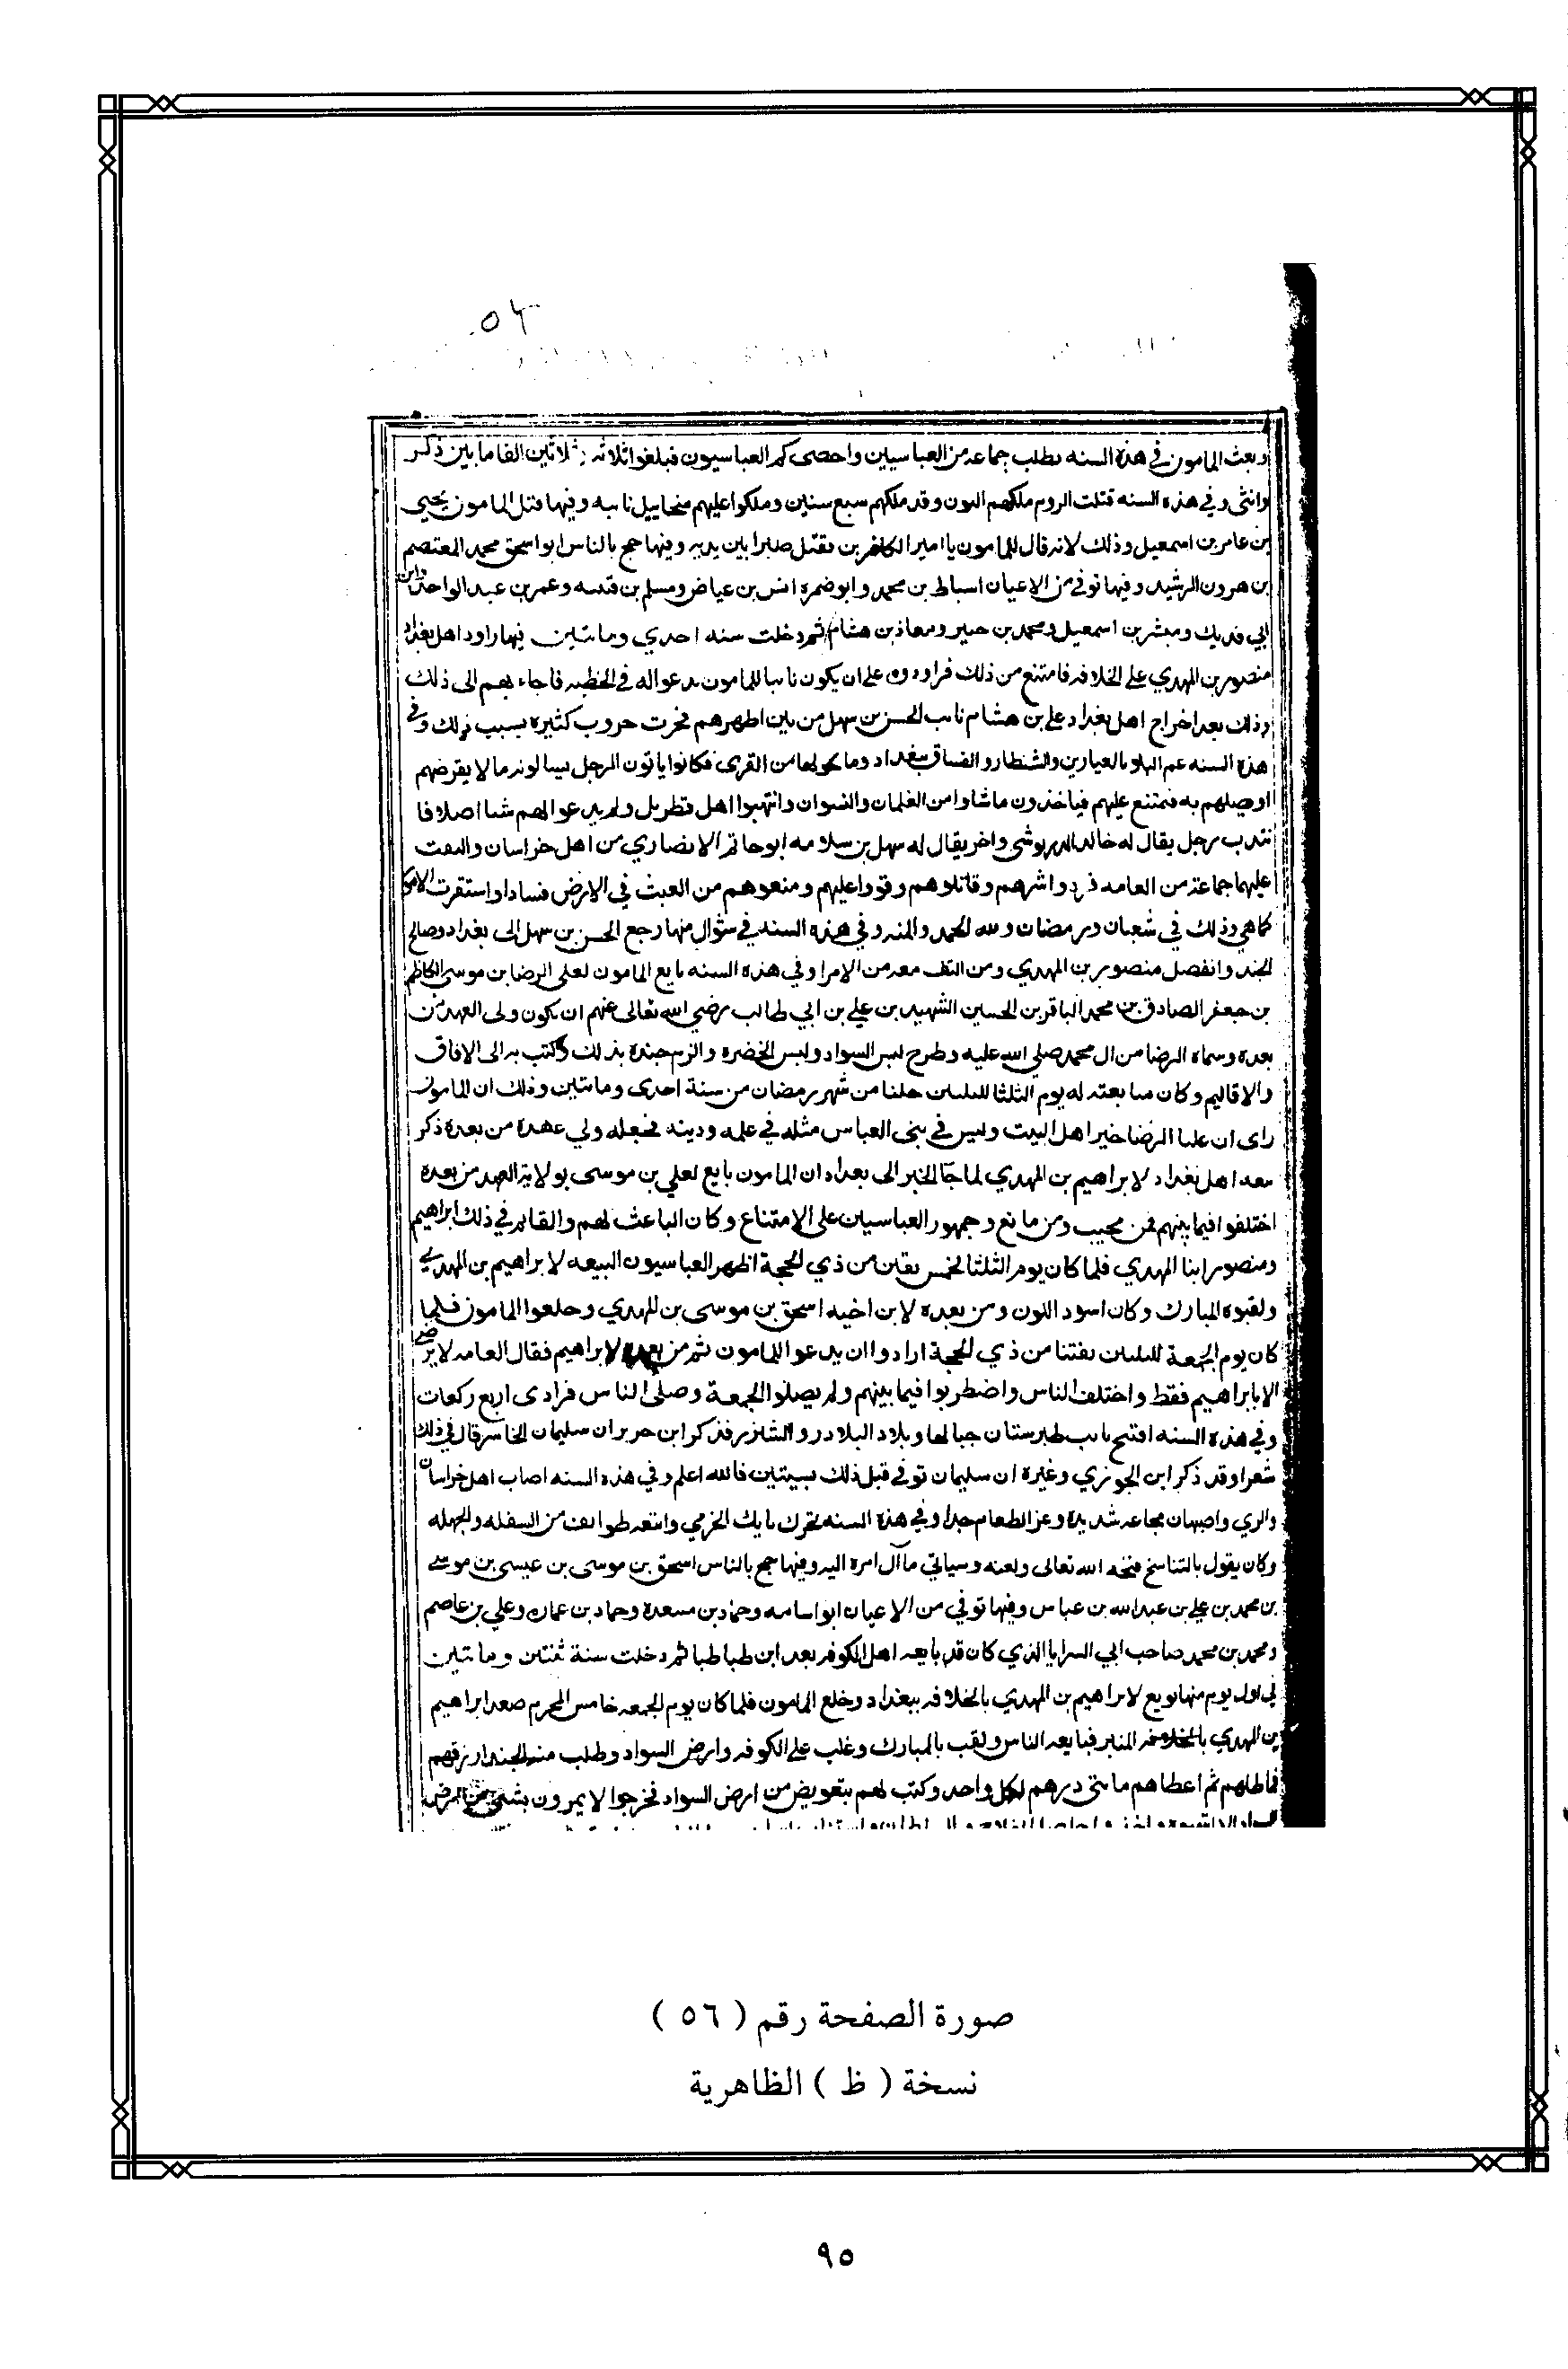 ٥٦
وبعث المامون في هذه السنه يطلب جماعه من العباسيين واحصى كم العباسيون فبلغوا ثلاثه وثلاثين الفا ما بين ذكر
وانثى وفي هذه السنه قتلت الروم ملكهم اليون وقد ملكهم سبع سنين وملكوا عليهم ميخاييل نايبه وفيها قتل المامون يحيى
بن عامر بن اسمعيل وذلك لانه قال للمامون يا امير الكافرين فقتل صبرا بين يديه وفيها حج بالناس ابو اسحق محمد المعتصم
بن هرون الرشيد وفيها توفي من الاعيان اسباط بن محمد وابو ضمره انس بن عياض ومسلم بن قتيبه وعمر بن عبد الواحد وابن
ابي فديك ومبشر بن اسمعيل ومحمد بن حمير ومعاذ بن هشام ثم دخلت سنه احدي ومايتين فيها راود اهل بغداد
منصور بن المهدي على الخلافه فامتنع من ذلك فراودوه على ان يكون نايبا للمامون يدعو اله في الخطبه فاجابهم الى ذلك
وذلك بعد اخراج اهل بغداد علي بن هشام نايب الحسن بن سهل من بين اظهرهم فجرت حروب كثيره بسبب ذلك وفي
هذه السنه عم البلا بالعيارين والشطار والفساق ببغداد وما حولها من القرى فكانوا ياتون الرجل يسالونه مالا يقرضهم
او يصلهم به فيمتنع عليهم فياخذون ما شاوا من الغلمان والنسوان وانتهبوا اهل قطربل ولم يدعوا لهم شيا اصلا فا
نتدب رجل يقال له خالد الدريوش واخر يقال له سهل بن سلامه ابو حاتم الانصاري من اهل خراسان والتفت
عليهما جماعة من العامه فردوا شرهم وقاتلوهم وقووا عليهم ومنعوهم من العبث في الارض فسادا واستقرت الامور
كما هي وذلك في شعبان ورمضان ولله الحمد والمنه وفي هذه السنه في شوال منها رجع الحسن بن سهل الى بغداد وصالح
الجند وانفصل منصور بن المهدي ومن التف معه من الامرا وفي هذه السنه بايع المامون لعلى الرضا بن موسى الكاظم
بن جعفر الصادق بن محمد الباقر بن الحسين الشهيد بن علي بن ابي طالب رضي الله تعالى عنهم ان يكون ولى العهد من
بعده وسماه الرضا من ال محمد صلي الله عليه وطرح لبس السواد ولبس الخضره والزم جنده بذلك وكتب به الى الافاق
والاقاليم وكان مبايعته له يوم الثلثا لليلتين خلتا من شهر رمضان من سنة احدى ومايتين وذلك ان المامون
راى ان عليا الرضا خير اهل البيت وليس في بنى العباس مثله في علمه ودينه فجعله ولي عهده من بعده ذكر
بيعه اهل بغداد لابراهيم بن المهدي لما جآ الخبر الى بغداد ان المامون بايع لعلي بن موسى بولاية العهد من بعده
اختلفوا فيما بينهم فمن مجيب ومن مانع وجمهور العباسيين على الامتناع وكان الباعث لهم والقايم في ذلك ابراهيم
ومنصور ابنا المهدي فلما كان يوم الثلثا لخمس بقين من ذي الحجة اظهر العباسيون البيعه لابراهيم بن المهدي
ولقبوه المبارك وكان اسود اللون ومن بعده لابن اخيه اسحق بن موسى بن المهدي وخلعوا المامون فلما
كان يوم الجمعة لليلتين بقتنا من ذي الحجة ارادوا ان يدعوا للمامون ثم من بعده لابراهيم فقال العامه لا نرضى
الا بابراهيم فقط واختلف الناس واضطربوا فيما بينهم ولم يصلوا الجمعة وصلى الناس فرادى اربع ركعات
وفي هذه السنه افتتح نايب طبرستان جبالها وبلاد البلادر و الشيزر فذكر ابن جرير ان سليمان الخاسر قال في ذلك
شعرا وقد ذكر ابن الجوزي وغيره ان سليمان توفي قبل ذلك بسنتين فالله اعلم وفي هذه السنه اصاب اهل خراسان
والري واصبهان مجاعه شديده وعز الطعام جدا وفي هذه السنه تحرك بابك الخرمي واتبعه طوايف من السفله والجهله
وكان يقول بالتناسخ قبحه الله تعالى ولعنه وسياتي مآل امره اليه وفيها حج بالناس اسحق بن موسى بن عيسى بن موسى
بن محمد بن علي بن عبد الله بن عباس وفيها توفي من الاعيان ابو اسامه وحماد بن مسعدة وحماد بن عماره وعلي بن عاصم
ومحمد بن محمد صاحب ابي السرايا الذي كان قد بايعه اهل الكوفه بعد ابن طباطبا ثم دخلت سنة ثنتين ومايتين
في اول يوم منها بويع لابراهيم بن المهدي بالخلافه ببغداد وخلع المامون فلما كان يوم الجمعه خامس المحرم صعد ابراهيم
بن المهدي المنبر فبايعه الناس ولقب بالمبارك وغلب على الكوفه وارض السواد وطلب منه الجند ارزاقهم
فماطلهم ثم اعطاهم مايتى درهم لكل واحد وكتب لهم بتعويض من ارض السواد فخرجوا لا يمرون بشي
صورة الصفحة رقم ( ٥٦ )
نسخة ( ظ ) الظاهرية
٩٥